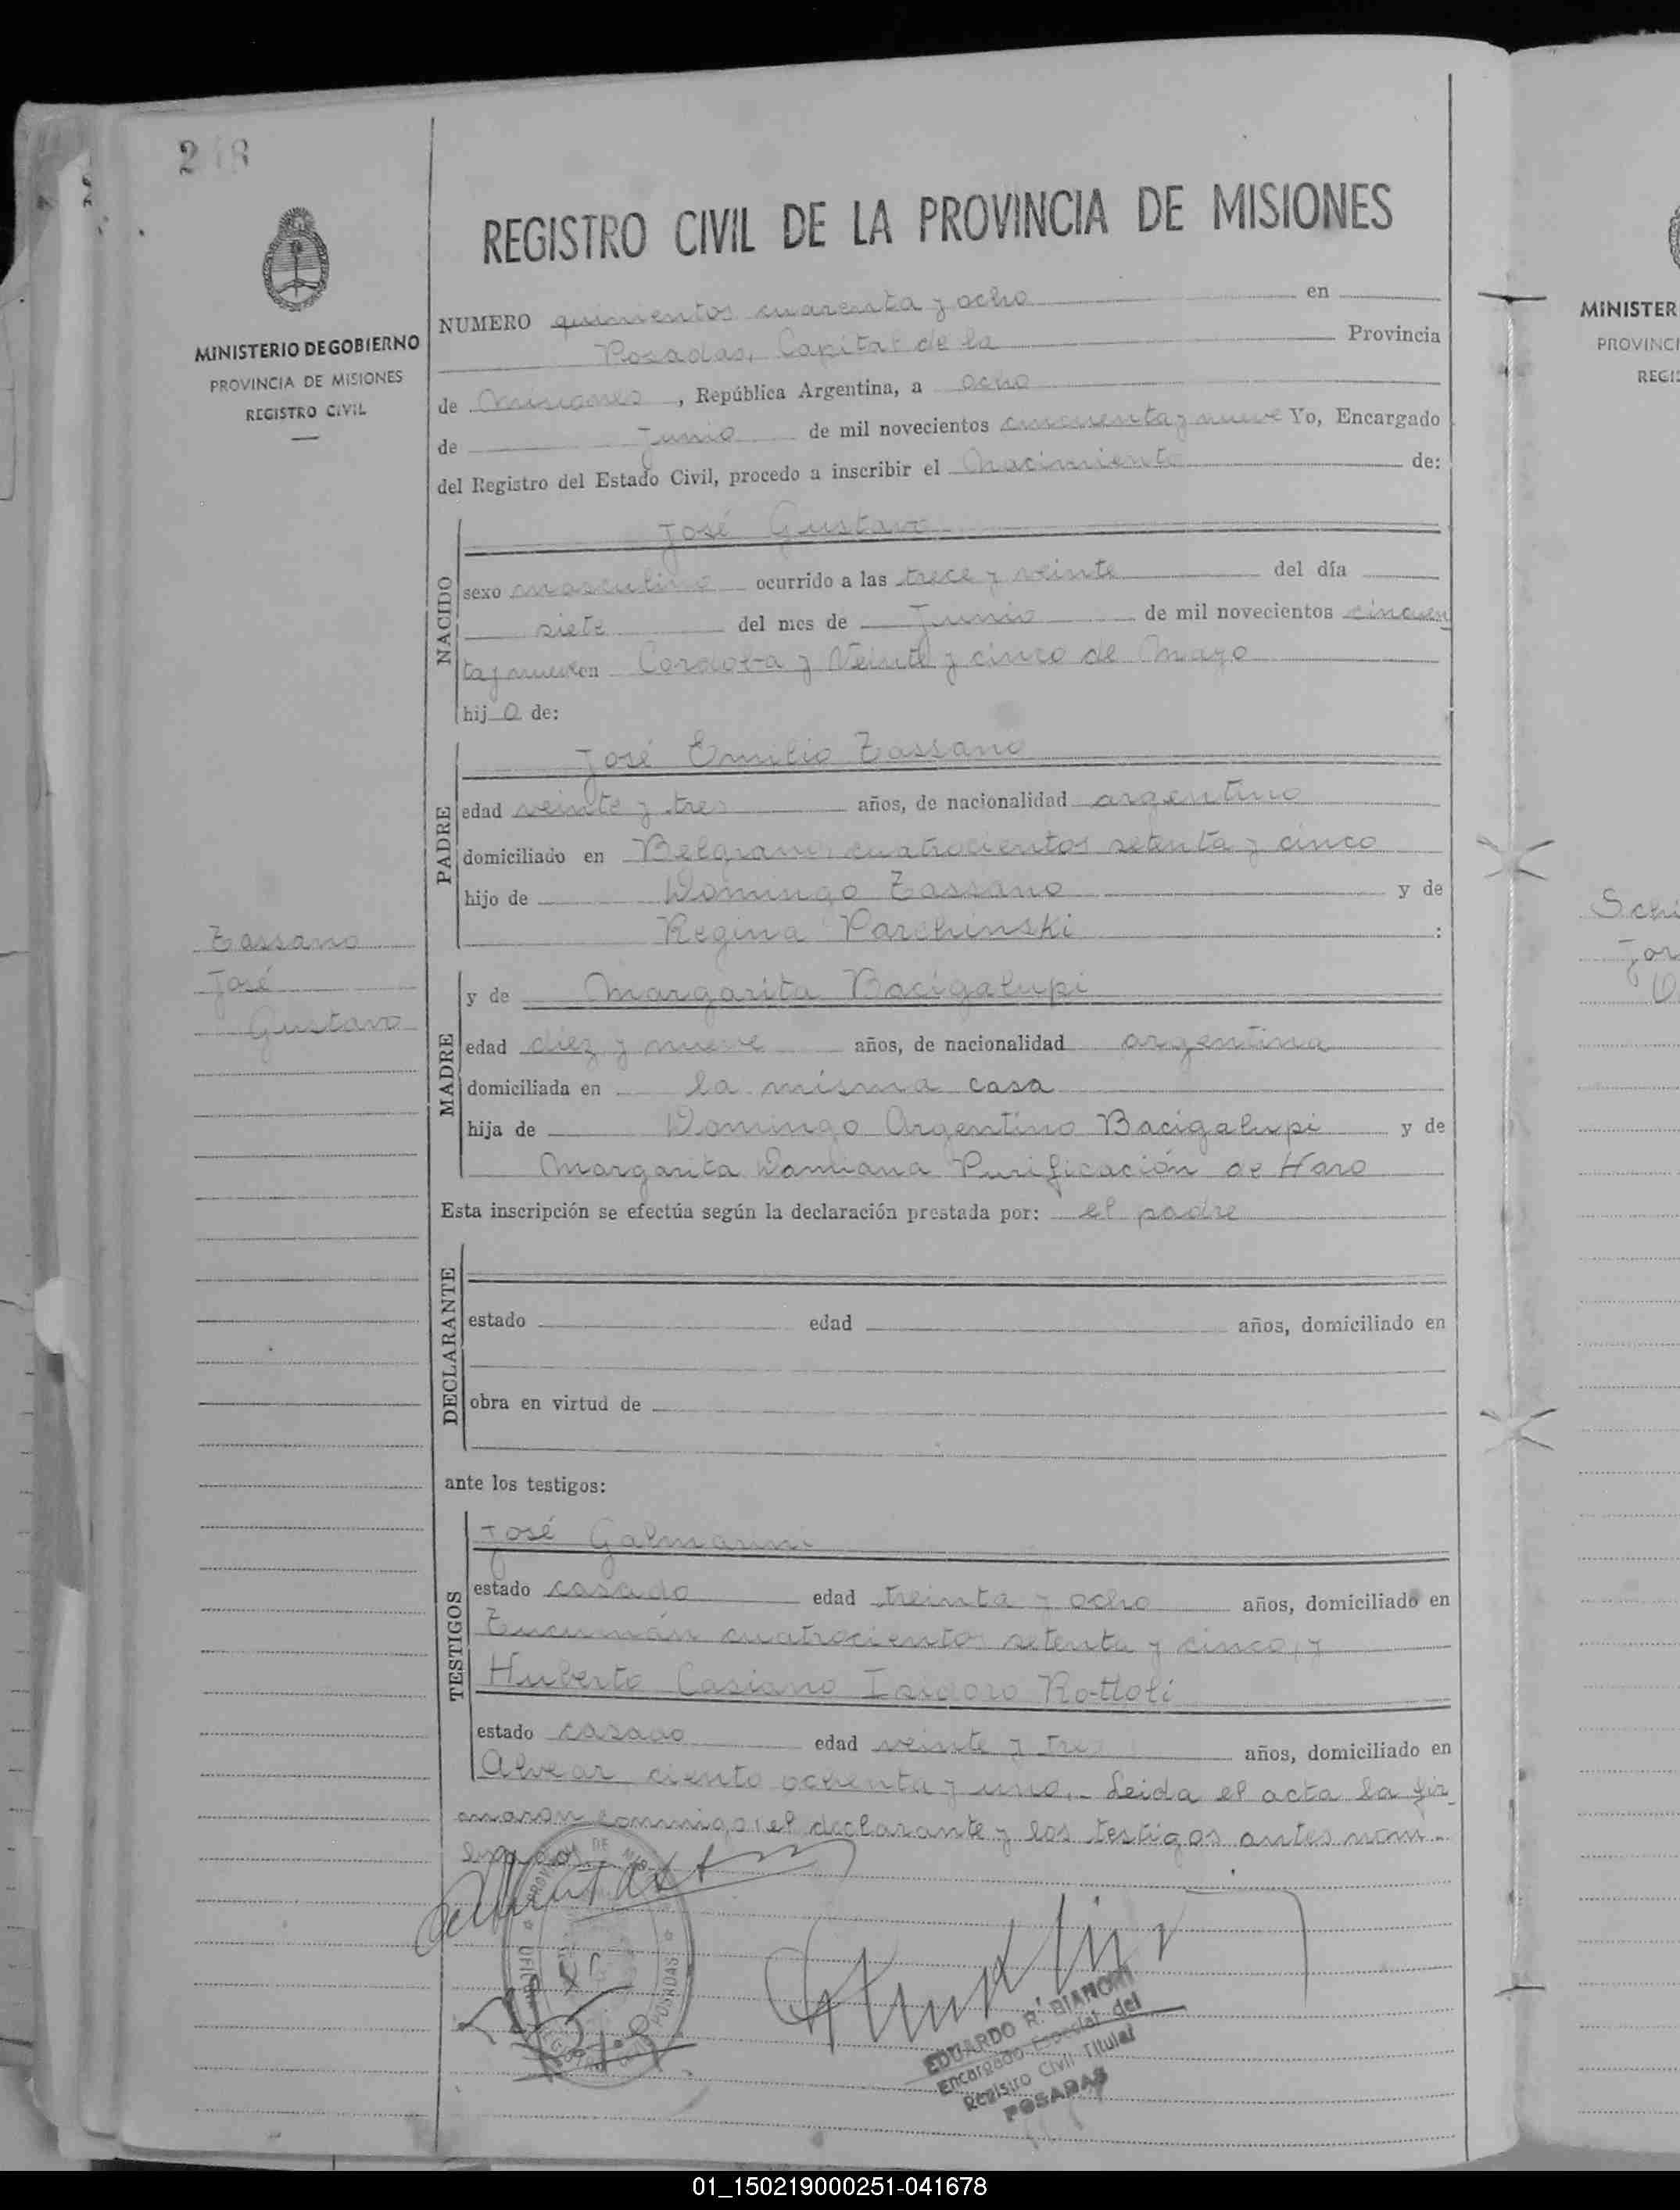 REGISTRO CIVIL DE LA PROVINCIA DE MISIONES
MINISTERIO DE GOBIERNO
PROVINCIA DE MISIONES
REGISTRO CIVIL
NUMERO quinientos cuarenta y ocho en
Posadas, Capital de la Provincia
de Misiones, República Argentina, a ocho
de junio de mil novecientos cincuenta y nueve Yo, Encargado
del Registro del Estado Civil, procedo a inscribir el Nacimiento de:
NACIDO
José Gustavo
sexo masculino ocurrido a las trece y veinte del día
siete del mes de Junio de mil novecientos cincuen
ta y nueve en Cordoba y Veinte y cinco de Mayo
hij o de:
PADRE
José Emilio Tassano
edad veinte y tres años, de nacionalidad argentino
domiciliado en Belgrano cuatrocientos setenta y cinco
hijo de Domingo Tassano y de
Regina Parchinski :
Tassano
José
Gustavo
MADRE
y de Margarita Bacigalupi
edad diez y nueve años, de nacionalidad argentina
domiciliada en la misma casa
hija de Domingo Argentino Bacigalupi y de
Margarita Damiana Purificación de Haro
Esta inscripción se efectúa según la declaración prestada por: el padre
DECLARANTE
estado edad años, domiciliado en
obra en virtud de
ante los testigos:
TESTIGOS
José Galmarini
estado casado edad treinta y ocho años, domiciliado en
Tucumán cuatrocientos setenta y cinco, y
Huberto Casiano Isidoro Rottoli
estado casado edad veinte y tres años, domiciliado en
Alvear ciento ochenta y uno.- Leida el acta la fir
maron conmigo, el declarante y los testigos antes nom-
brados
EDUARDO R. BIANCHI
Encargado Especial del
Registro Civil Titular
POSADAS
MINISTER
PROVINCI
REGIS
Schi
Jor
01_150219000251-041678